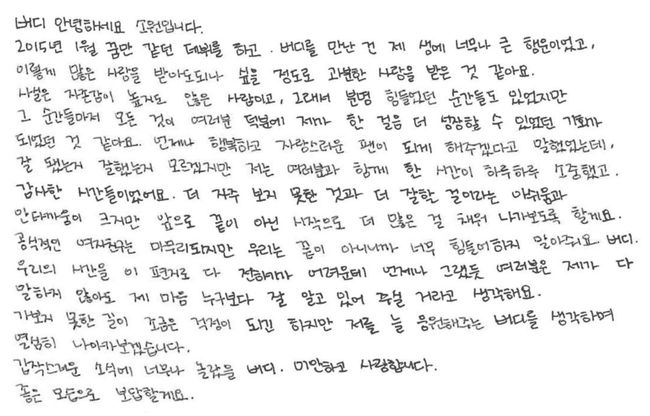 버디 안녕하세요 소원입니다.
2015년 1월 꿈만 같던 데뷔를 하고. 버디를 만난 건 제 생에 너무나 큰 행운이었고,
이렇게 많은 사랑을 받아도되나 싶을 정도로 과분한 사랑을 받은 것 같아요.
사실은 자존감이 높지도 않은 사람이고, 그래서 분명 힘들었던 순간들도 있었지만
그 순간들마저 모든 것이 여러분 덕분에 제가 한 걸음 더 성장할 수 있었던 기회가
되었던 것 같아요. 언제나 행복하고 자랑스러운 팬이 되게 해주겠다고 말했었는데,
잘 됐는지 잘했는지 모르겠지만 저는 여러분과 함께 한 시간이 하루하루 소중했고.
감사한 시간들이었어요. 더 자주 보지 못한 것과 더 잘할 걸이라는 아쉬움과
안타까움이 크지만 앞으로 끝이 아닌 시작으로 더 많은 걸 채워 나가보도록 할게요.
공식적인 여자친구는 마무리되지만 우리는 끝이 아니니까 너무 힘들어하지 말아주요. 버디.
우리의 시간을 이 편지로 다 전하기가 어려운데 언제나 그랬듯 여러분은 제가 다
말하지 않아도 제 마음 누구보다 잘 알고 있어 주실 거라고 생각해요.
가보지 못한 길이 조금은 걱정이 되긴 하지만 저를 늘 응원해주는 버디를 생각하며
열심히 나아가보겠습니다.
갑작스러운 소식에 너무나 놀랐을 버디. 미안하고 사랑합니다.
좋은 모습으로 보답할게요.